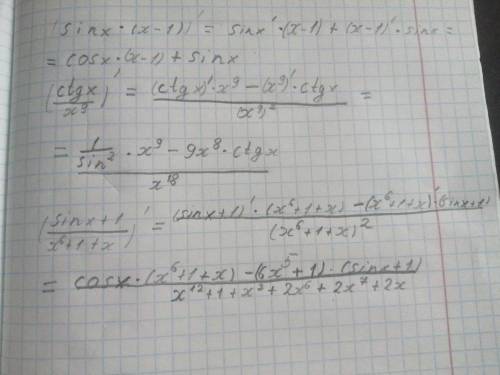 (sinx·(x-1))' = sinx'·(x-1)+(x-1)'·sinx=
= cosx·(x-1)+sinx
(ctgx/x⁹)' = ((ctgx)'·x⁹-(x⁹)'·ctgx)/(x⁹)² =
= (1/sin²·x⁹-9x⁸·ctgx)/x¹⁸
((sinx+1)/(x⁶+1+x))' = ((sinx+1)'·(x⁶+1+x)-(x⁶+1+x)'·(sinx+1))/(x⁶+1+x)²
= (cosx·(x⁶+1+x)-(6x⁵+1)·(sinx+1))/(x¹²+1+x²+2x⁶+2x⁷+2x)